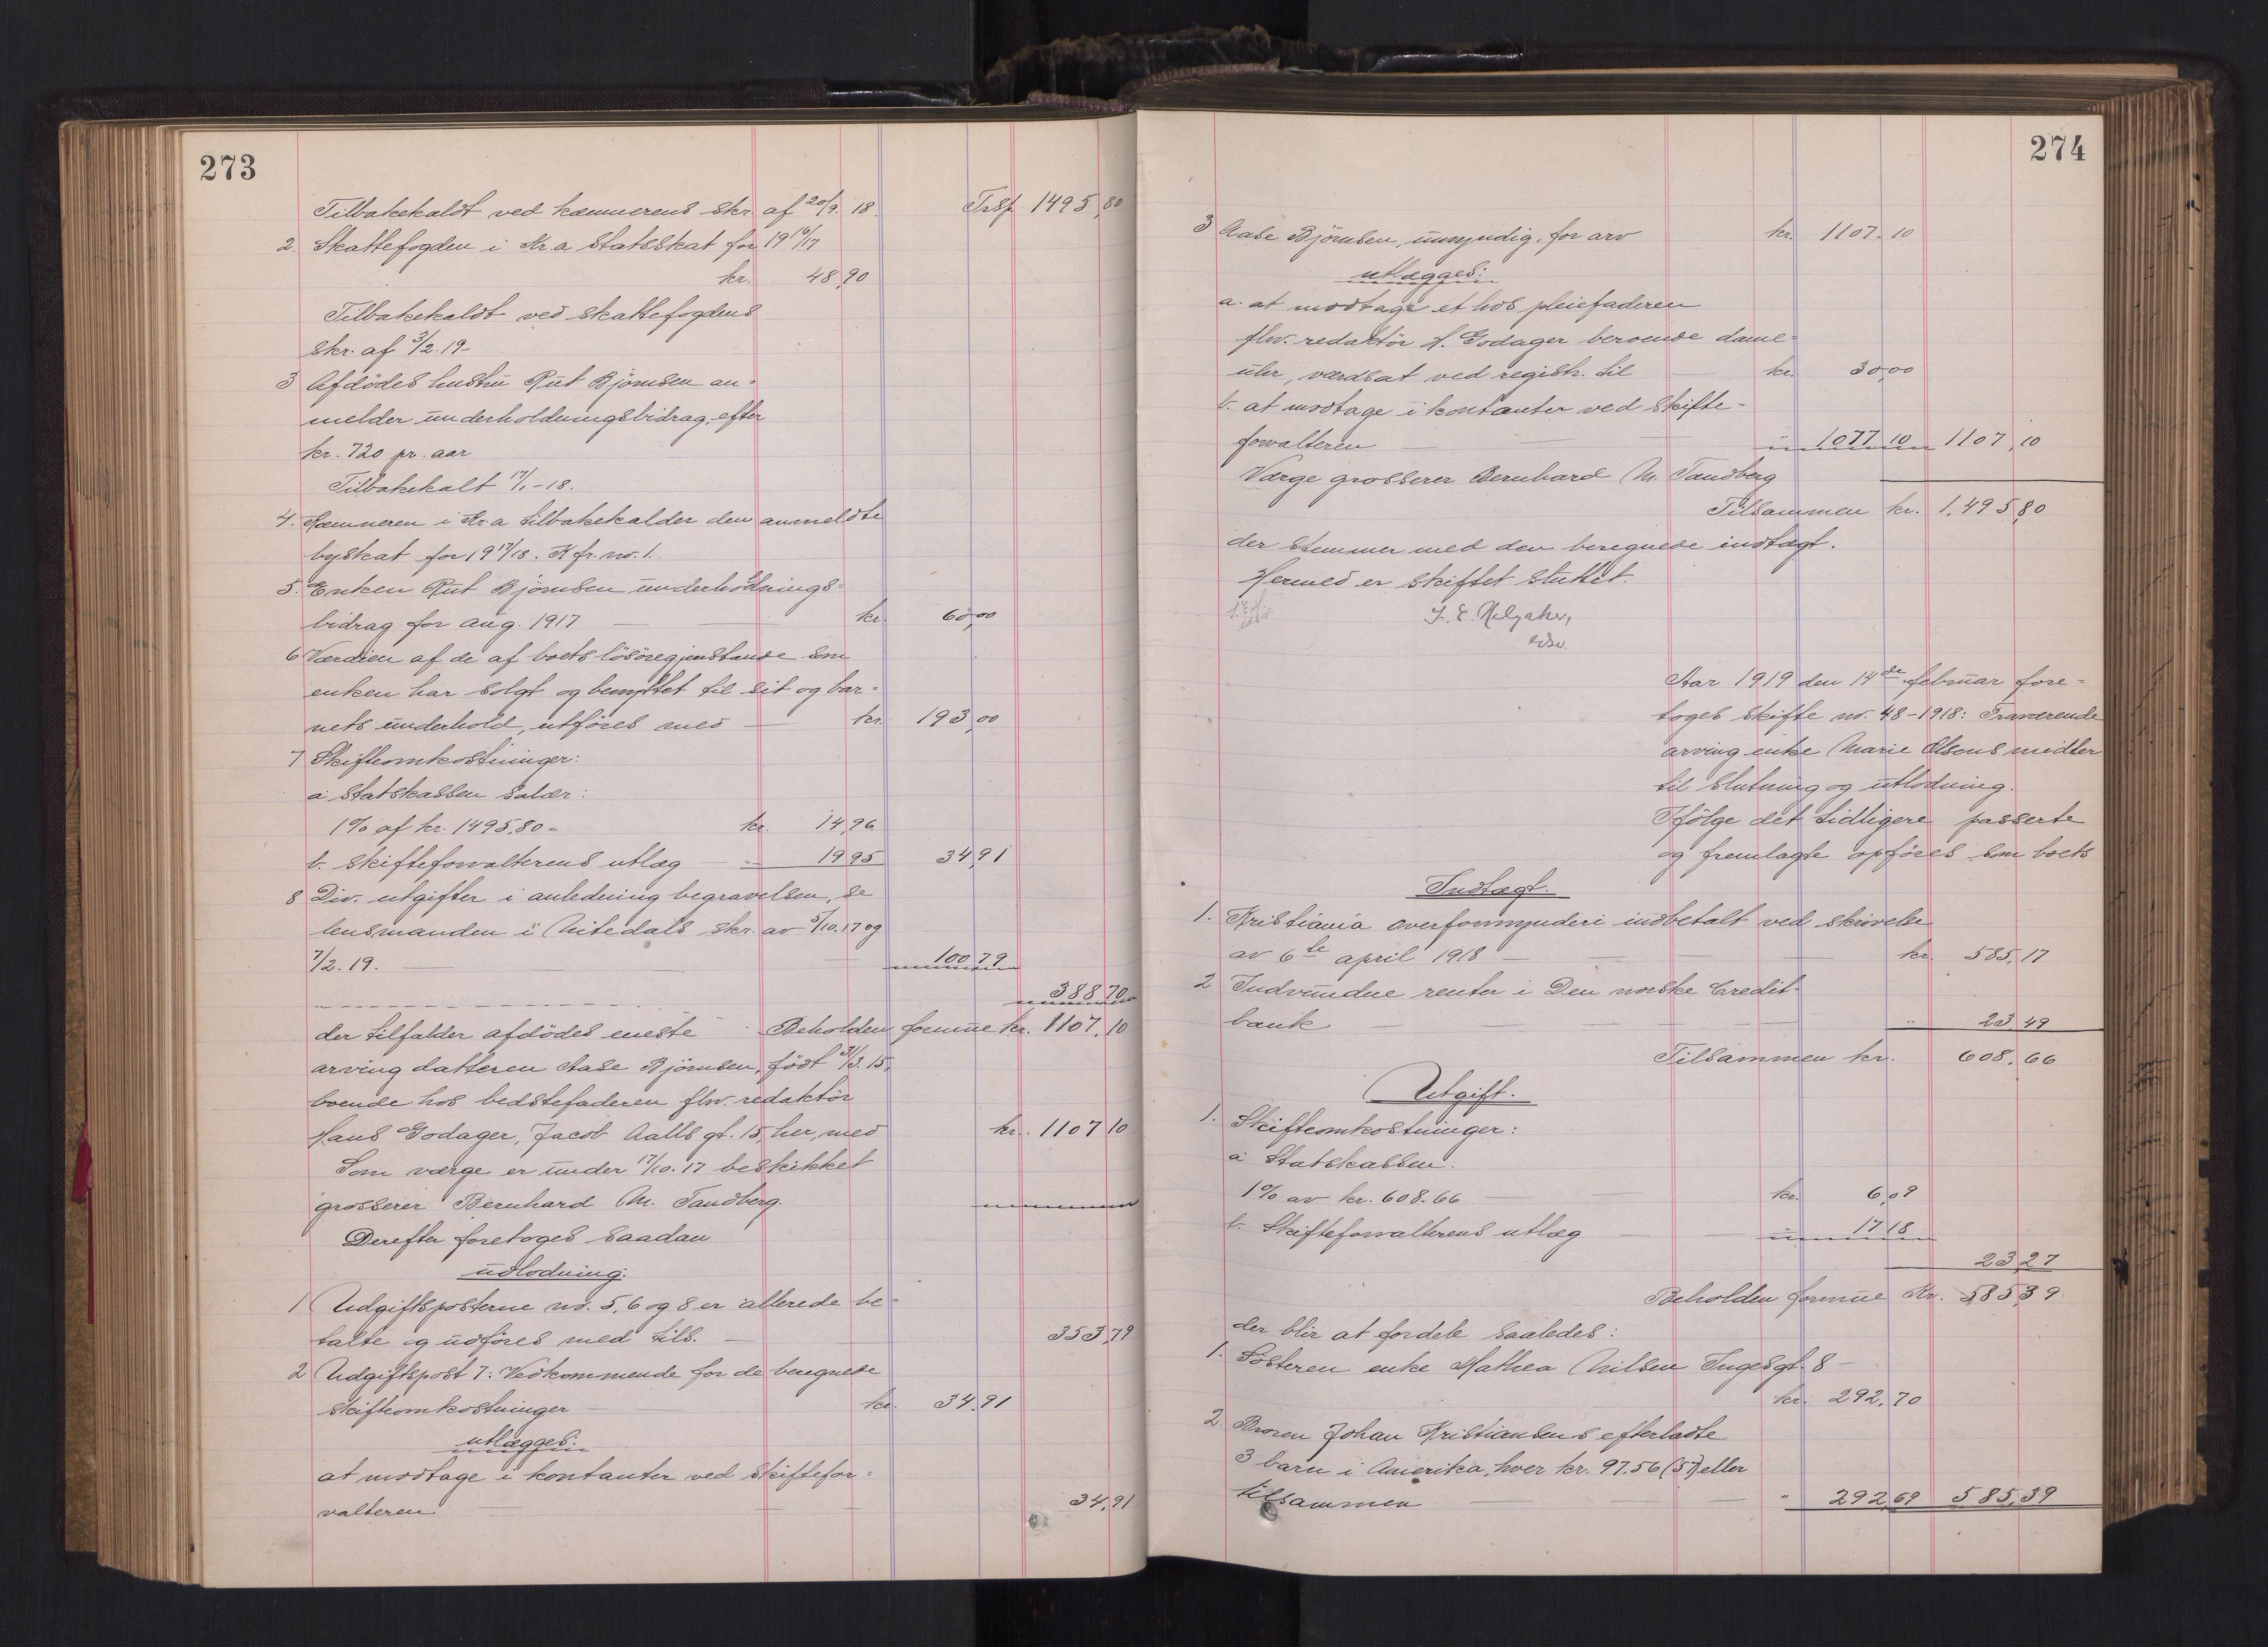 273
Tilbakekaldt ved kæmnerens skr. af 20/9. 18. Trsp. 1495,80
2. Skattefogden i Kr.a Statsskat for 1916/17
kr. 48,90
Tilbakekaldt ved skattefogdens
skr. af 3/2. 19-
3 Afdödes hustru Rut Björnsen an-
melder underholdningsbidrag efter
kr. 720 pr. aar
Tilbakekalt 17/1-18.
4. Kæmneren i Kr.a tilbakekalder den anmeldte
byskat for 1917/18. Kfr. no. 1.
5. Enken Rut Björnsen underholdnings-
bidrag for aug. 1917 kr. 60,00
6 Værdien af de af boets lösöregjenstande som
enken har solgt og benyttet til sit og bar-
nets underhold, utföres med kr. 193,00
7 Skifteomkostninger:
a Statskassen Salær:
1% af kr. 1495,80 - kr. 14,96
b. skifteforvalterens utlæg " 19 95 34,91
8 Div. utgifter i anledning begravelsen, se
lensmanden i Nitedals skr. av 5/10.17 og
7/2. 19. 100 79
388 70
der tilfalder afdödes eneste Beholden formue kr. 1107,10
arving datteren Aase Björnsen, födt 31/3. 15,
boende hos bedstefaderen fhv. redaktör
Hans Godager, Jacob Aalls gt. 15, her, med kr. 1107 10
Som værge er under 17/10. 17 beskikket
grosserer Bernhard M. Tandberg.
Derefter foretoges saadan
udlodning:
1 Udgiftsposterne no. 5, 6 og 8 er allerede be-
talte og udföres med tils. 353,79
2 Udgiftspost 7. Vedkommende for de beregnede
skifteomkostninger kr. 34.91
utlægges:
at modtage i kontanter ved skiftefor-
valteren 34,91
274
3 Aase Björnsen, umyndig, for arv kr. 1107.10
utlægges:
a. at modtage et hos pleiefaderen
fhv. redaktör H. Godager beroende dame-
uhr, værdsat ved registr. til kr. 30,00
b. at modtage i kontanter ved skifte-
forvalteren " 1077 10 1107,10
Værge grosserer Bernhard M. Tandberg
Tilsammen kr. 1.495,80
der stemmer med den beregnede indtægt.
Hermed er skiftet sluttet.
Aar 1919 den 14de februar fore-
toges skifte no. 48-1918: Fraværende
arving enke Marie Olsens midler
til slutning og utlodning.
Ifölge det tidligere passerte
og fremlagte opföres som boets
Indtægt.
1. Kristiania overformynderi indbetalt ved skrivelse
av 6te april 1918 kr. 585,17
2 Indvundne renter i Den norske Credit-
bank " 23,49
Tilsammen kr. 608.66
Utgift.
1. Skifteomkostninger:
a Statskassen:
1% av kr. 608.66 kr. 6,09
b. Skifteforvalterens utlæg " 17 18
23,27
Beholden formue Kr. 585,39
der blir at fordele saaledes:
1. Sösteren enke Mathea Nilsen Ingesgt. 8 -
kr. 292.70
2. Broren Johan Kristiansens efterladte
3 barn i Amerika, hver kr. 97.56 (57) eller
tilsammen " 292,69 585,39